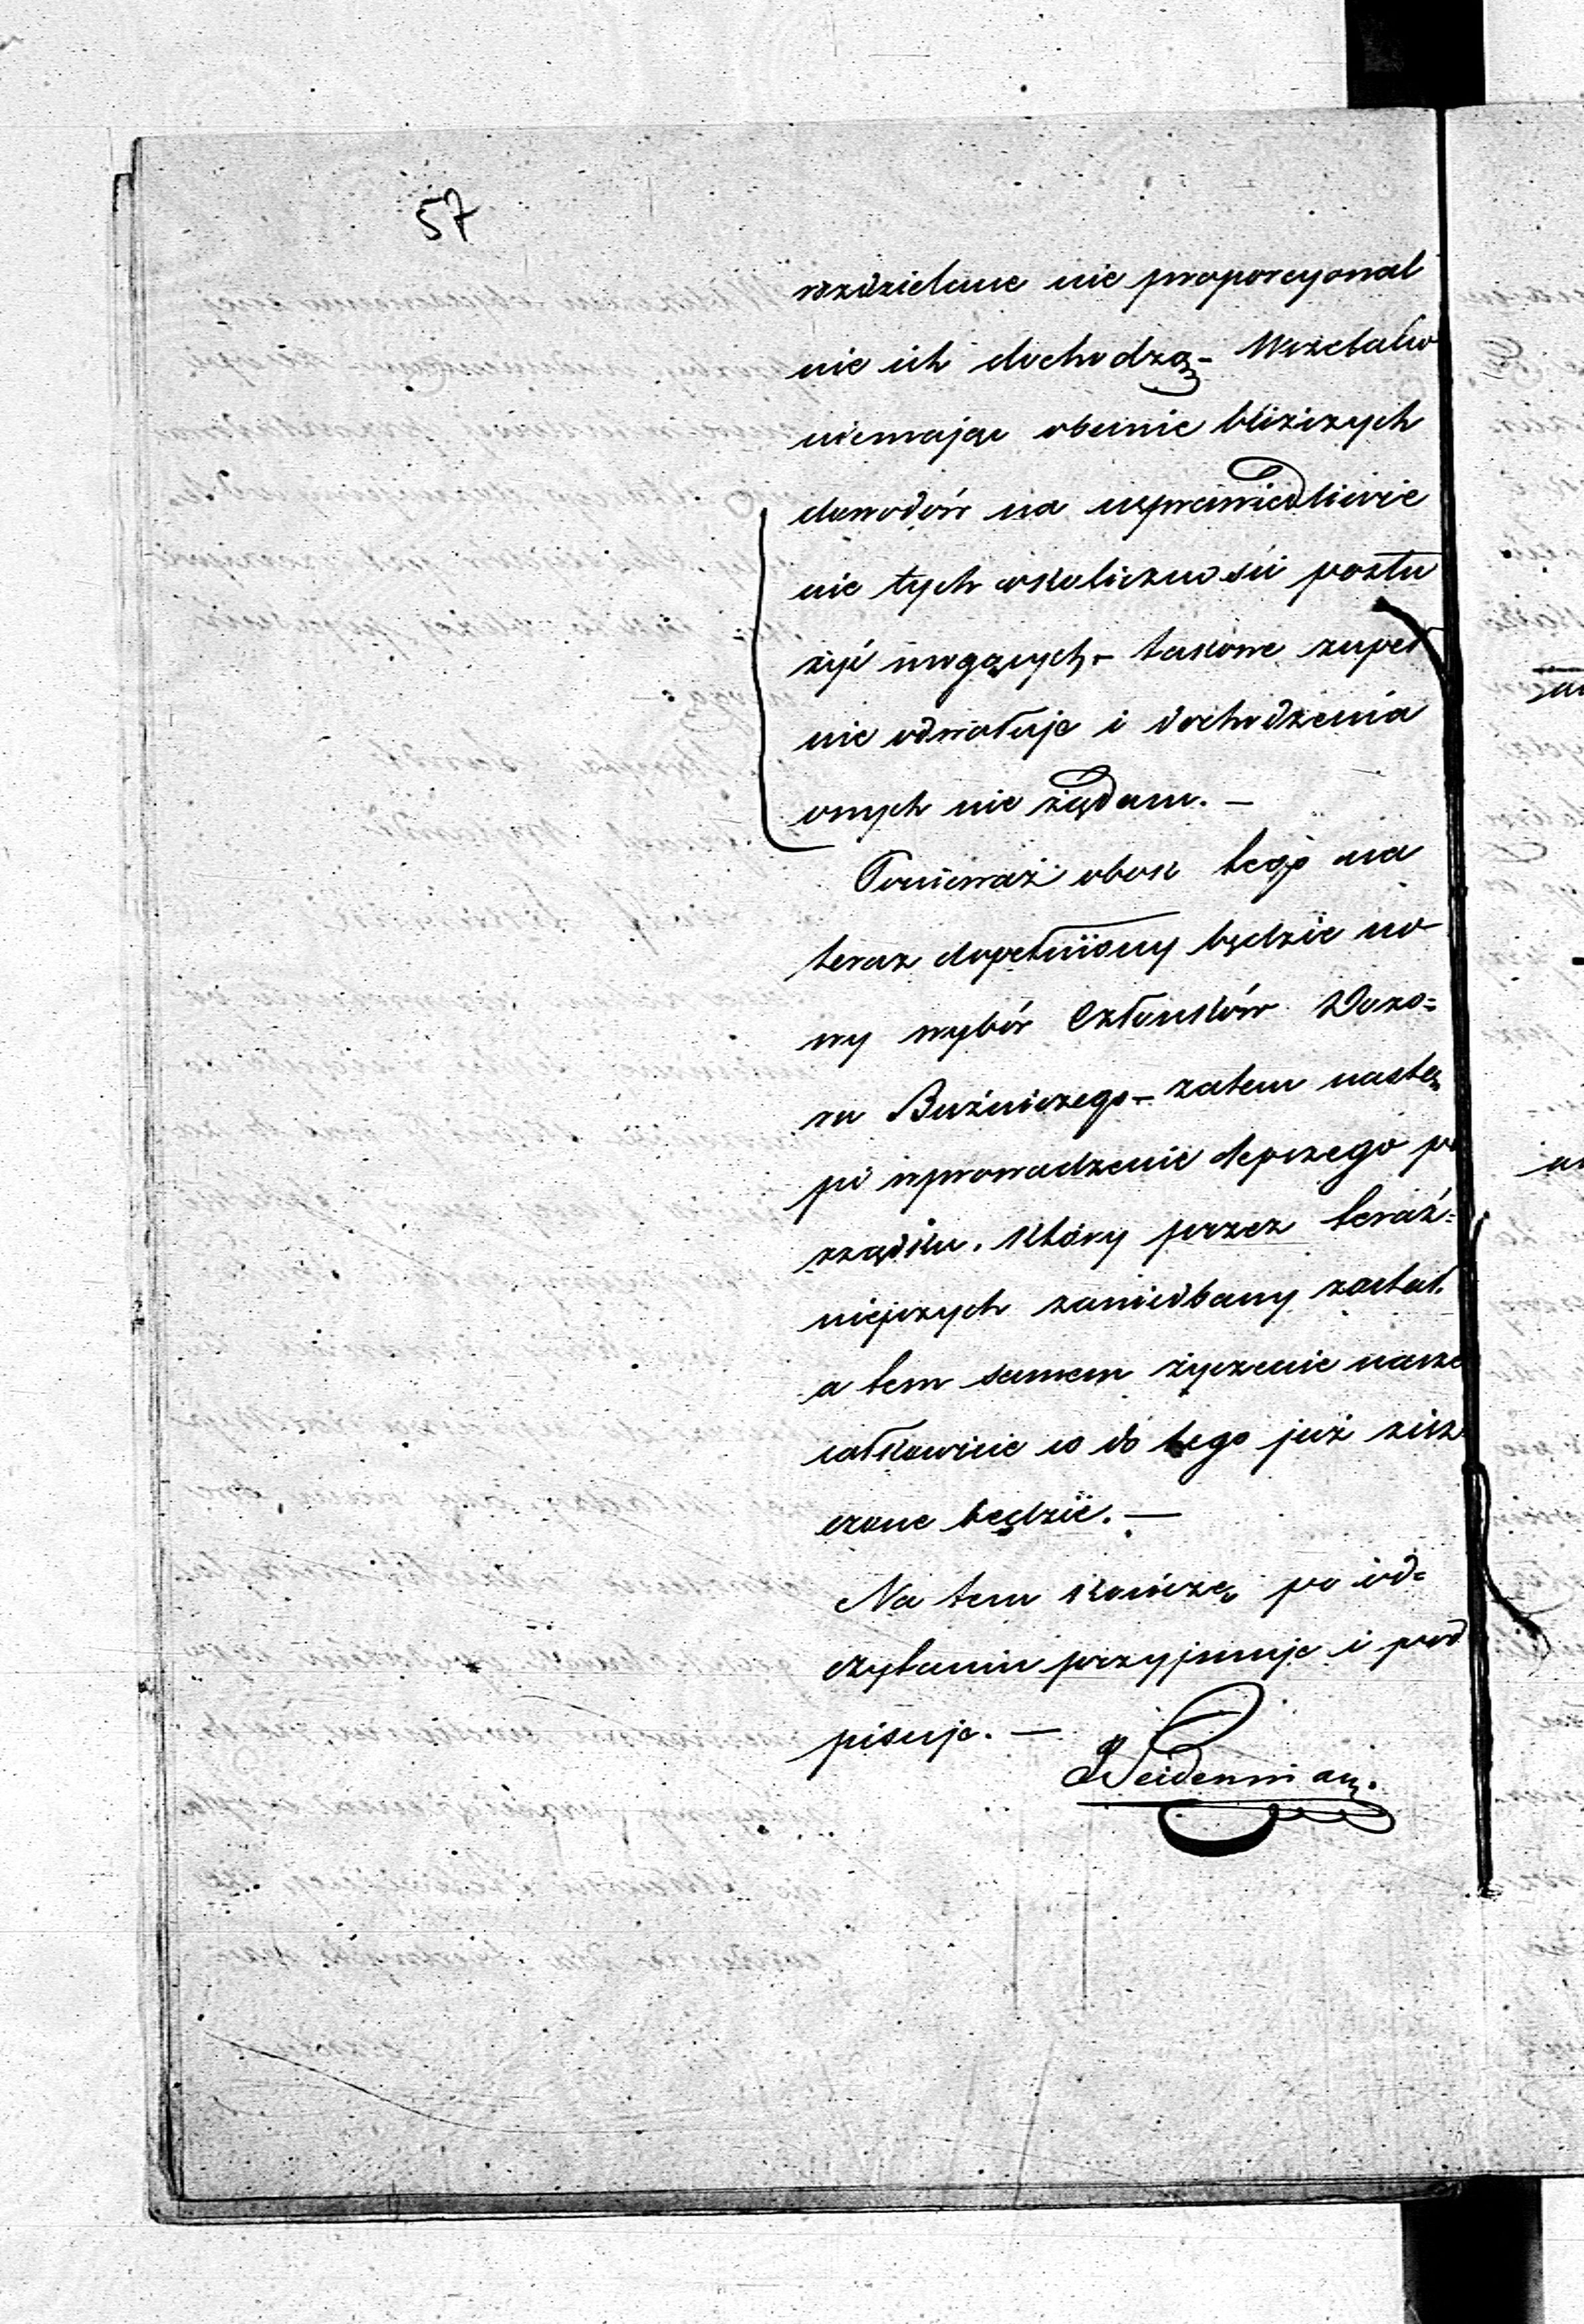 57
rozdzielane nie proporcyonal
nie ich dochodzą – Wszelako
niemając obecnie bliższych
dowodów na usprawiedliwie
nie tych okoliczności posłu
żyć mogących – takowe zupeł
nie odwołuje i dochodzenia
onych nie żądam. –
Ponieważ obok tego na
teraz dopełniony będzie no
wy wybór Członków Dozo=
ru Bużniczego – zatem nastę
pi wprowadzenie lepszego po
rządku, który przez teraź=
niejszych zaniedbany został.
a tem samem życzenie nasze
całkowicie co do tego już zisz
czone będzie. –
Na tem kończę po od=
czytaniu przyjmuje i pod
pisuje. –
Seidenman.